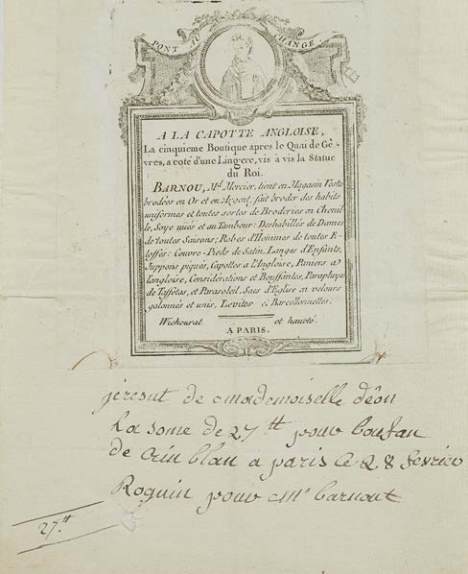 PONT AU CHANGE
A LA CAPOTTE ANGLOISE,
La cinquieme Boutique apres le Quai de Gê-
vres, a coté d'une Lingere, vis à vis la Statue
du Roi.
BARNOU, Md. Mercier, tient en Magasin Vestes
brodées en Or et en Argent, fait broder des habits
uniformes et toutes sortes de Broderies en Chenil
le, Soye nués et au Tambour: Deshabillés de Dames
de toutes Saisons; Robes d'Hommes de toutes E-
toffes: Couvre-Pieds de Satin, Langes d'Enfants,
Juppons piqués, Capottes a l'Angloise, Paniers a
langloise, Considérations et Bouffantes, Parapluye
de Taffetas, et Parasoleil, Sacs d'Eglise en velours
galonnés et unis, Levites & Barcellonnettes.
Wischourat et hauoté.
A PARIS.
jéresut de madmoiselle déon
la some de 27 tt pour boufan
de crin blan a paris ce 28 fevrier
Roguin pour Mr barnout
27 tt